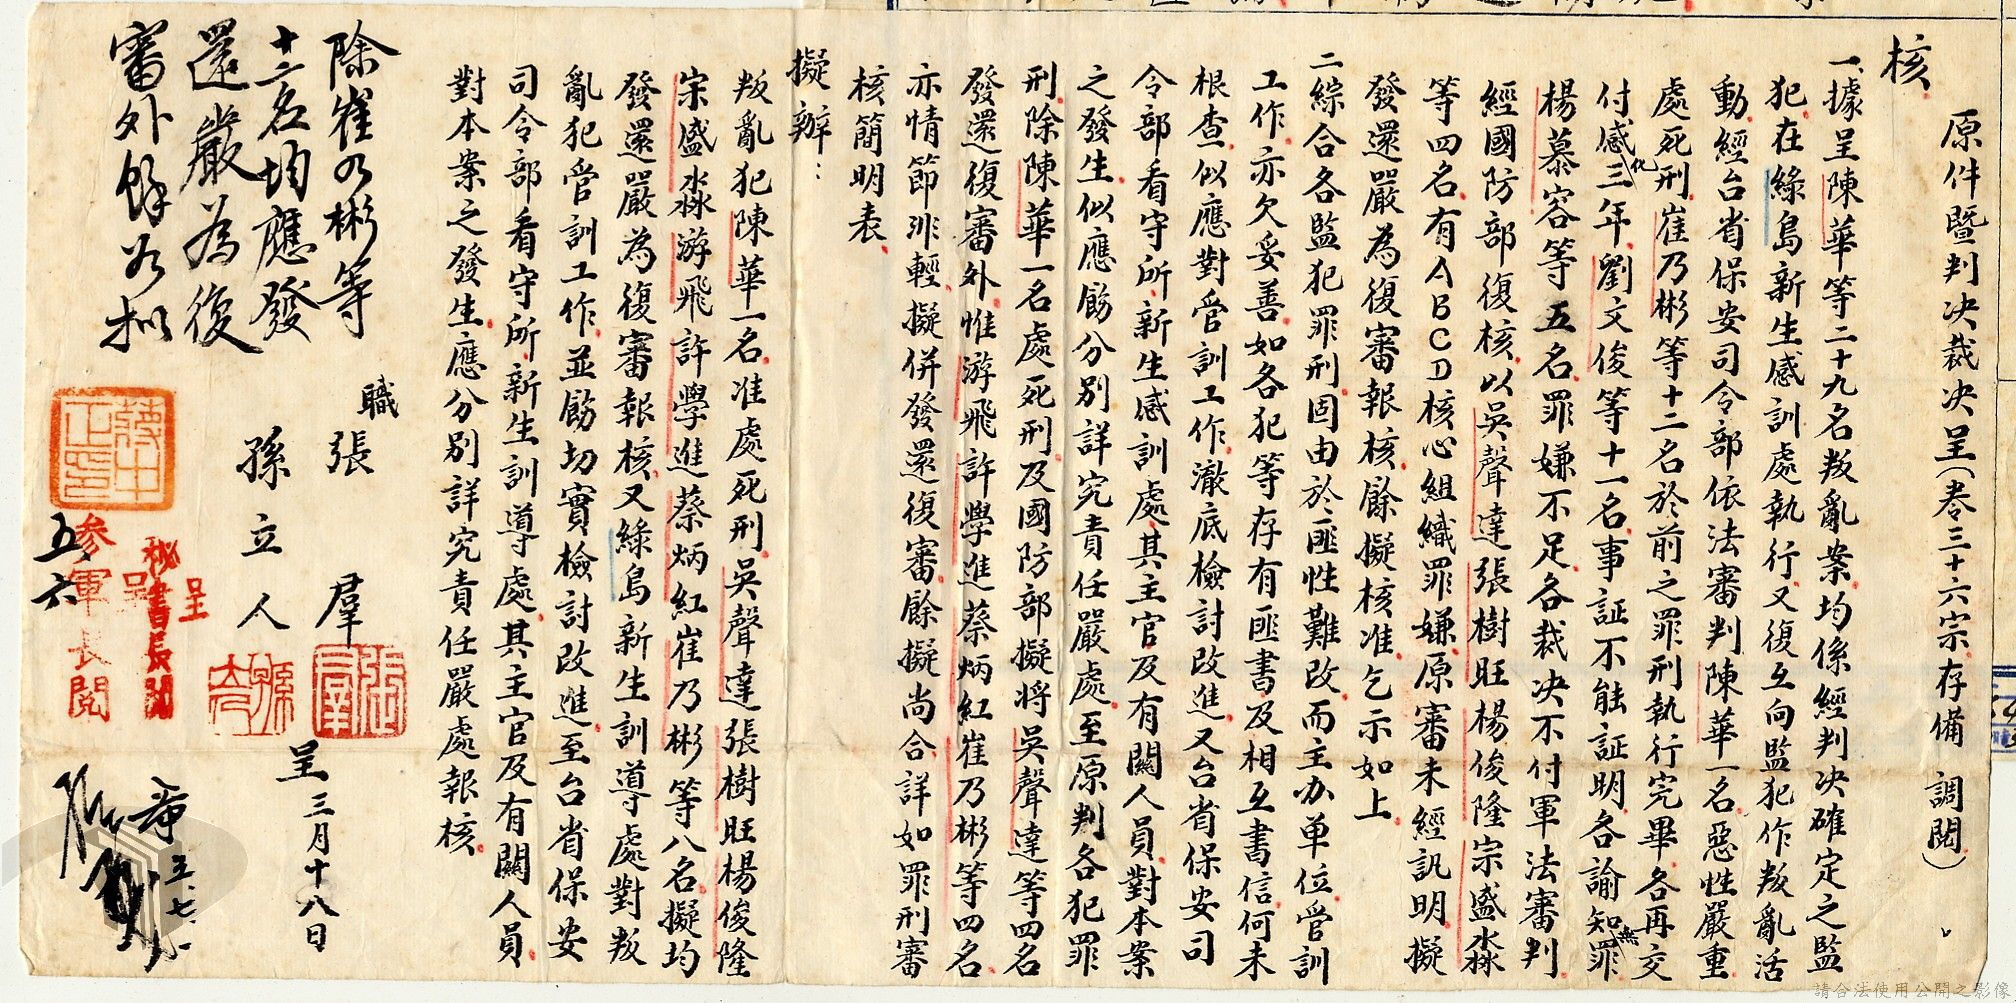 原件暨判决裁决呈(卷三十六宗存備調閱)
核
一、據呈陳華等二十九名叛亂案均係經判决確定之監
犯在綠島新生感訓處執行又復互向監犯作叛亂活
動經台省保安司令部依法審判陳華一名惡性嚴重
處死刑崔乃彬等十二名於前之罪刑執行完畢各再交
付感化三年劉文俊等十一名事証不能証明各諭知無罪
楊慕容等五名罪嫌不足各裁决不付軍法審判
經國防部復核以吳聲達張樹旺楊俊隆宗盛淼
等四名有ABCD核心組織罪嫌原審未經訊明擬
發還嚴為復審報核餘擬核准乞示如上
二綜合各監犯罪刑固由於匪性難改而主办单位管訓
工作亦欠妥善如各犯等存有匪書及相互書信何未
根查似應對管訓工作澈底檢討改進又台省保安司
令部看守所新生感訓處其主官及有關人員對本案
之發生似應飭分别詳究責任嚴處至原判各犯罪
刑除陳華一名處死刑及國防部擬將吳聲達等四名
發還復審外惟游飛許學進蔡炳紅崔乃彬等四名
亦情節非輕擬併發還復審餘擬尚合詳如罪刑審
核簡明表
擬辦：
叛亂犯陳華一名准處死刑吳聲達張樹旺楊俊隆
宋盛淼游飛許學進蔡炳紅崔乃彬等八名擬均
發還嚴為復審報核又綠島新生訓導處對叛
亂犯管訓工作並飭切實檢討改進至台省保安
司令部看守所新生訓導處其主官及有關人員
對本案之發生應分别詳究責任嚴處報核
職張羣
孫立人
呈三月十八日
張羣
除崔乃彬等
十二名均應發
還嚴為復
審外餘如擬
蔣中正印
呈
秘書長閱
呈
參軍長閱
五、六
五、七、
請合法使用公開之影像